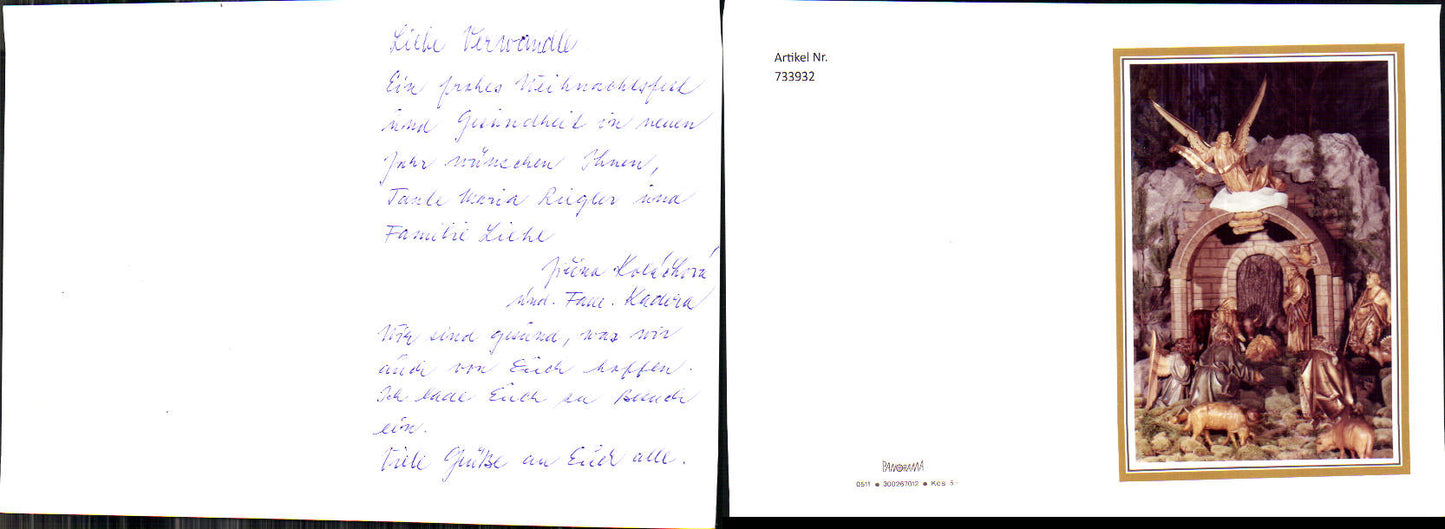 Liebe Verwandte
Ein frohes Weihnachtsfest
und Gesundheit in neuen
Jahr wünschen Ihnen,
Tante Maria Riegler und
Familie Liebe
Jiřina Koláčková
und. Fam. Kadera
Wir sind gesund, was wir
auch von Euch hoffen.
Ich lade Euch zu Besuch
ein.
Viele Grüße an Euch alle.
Artikel Nr.
733932
PANORAMA
0511 • 300267012 • Kcs 5-